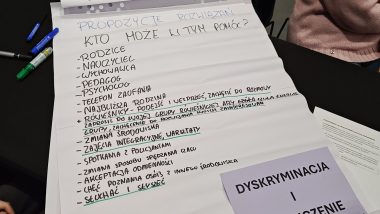 PROPOZYCJE ROZWIĄZAŃ
KTO MOŻE W TYM POMÓC?
- RODZICE
- NAUCZYCIEL
- WYCHOWAWCA
- PEDAGOG
- PSYCHOLOG
- TELEFON ZAUFANIA
- NAJBLIŻSZA RODZINA
- RÓWIEŚNICY - PODEJŚĆ I WESPRZEĆ, ZACHĘCIĆ DO ROZMOWY
ZAPROSIĆ DO SWOJEJ GRUPY RÓWIEŚNICZEJ ABY OSOBA
GRUPY, ZACHĘCENIE DO
- ZMIANA ŚRODOWISKA
- ZAJĘCIA INTEGRACYJNE, WARSZTATY
- SPOTKANIA Z POLICJANTAMI
- ZMIANA SPOSOBU SPĘDZANIA CZASU
- AKCEPTACJA ODMIENNOŚCI
- CHĘĆ POZNANIA OSÓB Z INNEGO ŚRODOWISKA
- SŁUCHAĆ I SŁYSZEĆ
DYSKRYMINACJA
I